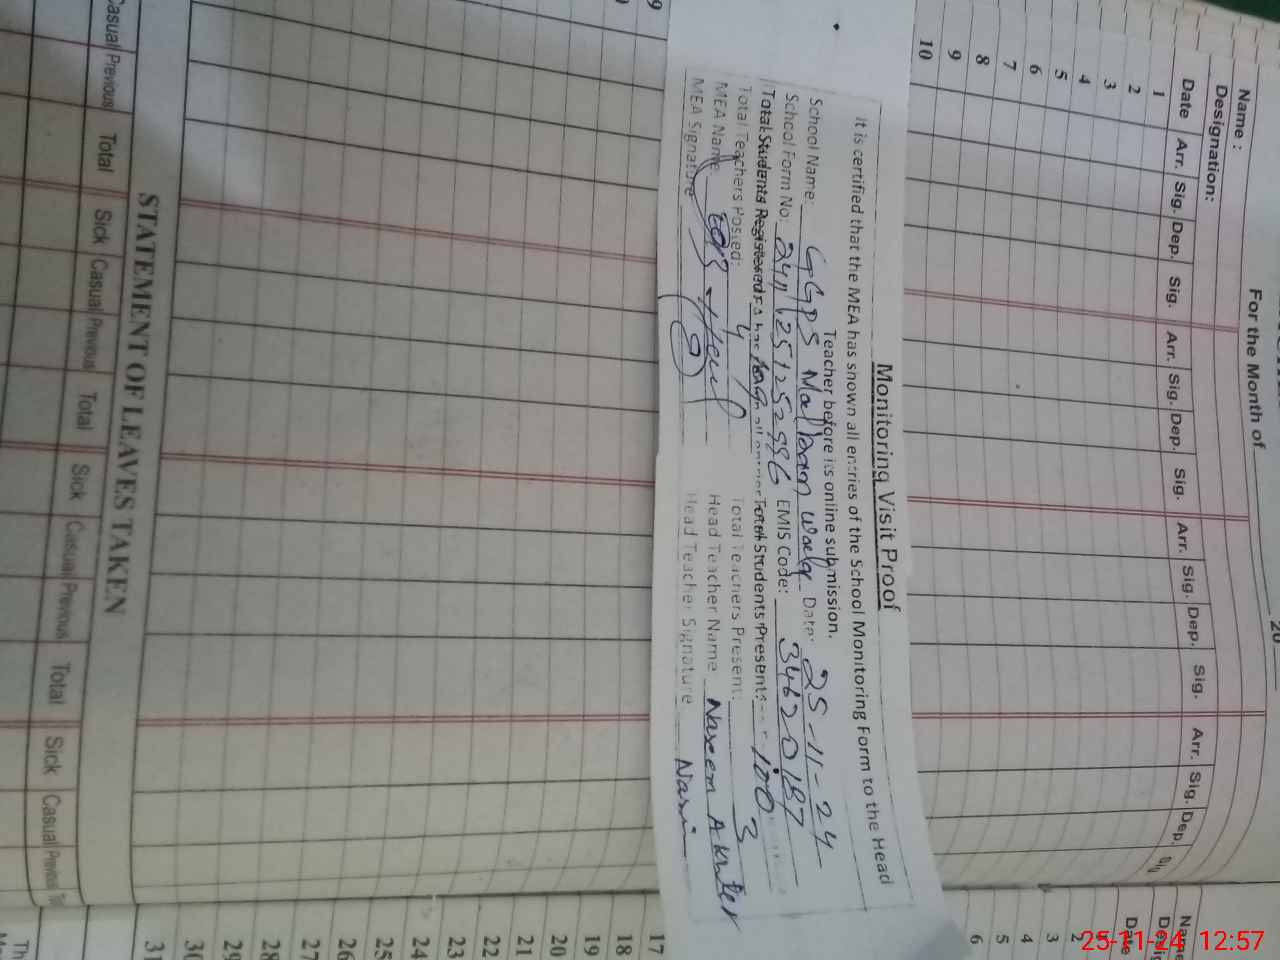 Monitoring Visit Proof
It is certified that the MEA has shown all entries of the School Monitoring Form to the Head
Teacher before its online submission.
School Name: GGPS Date: 25-11-24
School Form No: EMIS Code: 34620187
Total Students Registered: Total Students Present: 100
Total Teachers Posted: 4 Total Teachers Present: 3
MEA Name Head Teacher Name Naseem Akhter
MEA Signature Head Teacher Signature
20
For the Month of
Name :
Designation:
Date Arr. Sig. Dep. Sig. Arr. Sig. Dep. Sig. Arr. Sig. Dep. Sig. Arr. Sig. Dep.
1
2
3
4
5
6
7
8
9
10
STATEMENT OF LEAVES TAKEN
Casual Previous Total Sick Casual Previous Total Sick Casual Previous Total Sick Casual Previous
Name
Date
2
3
4
5
6
17
18
19
20
21
22
23
24
25
26
27
28
29
30
31
25-11-24 12:57